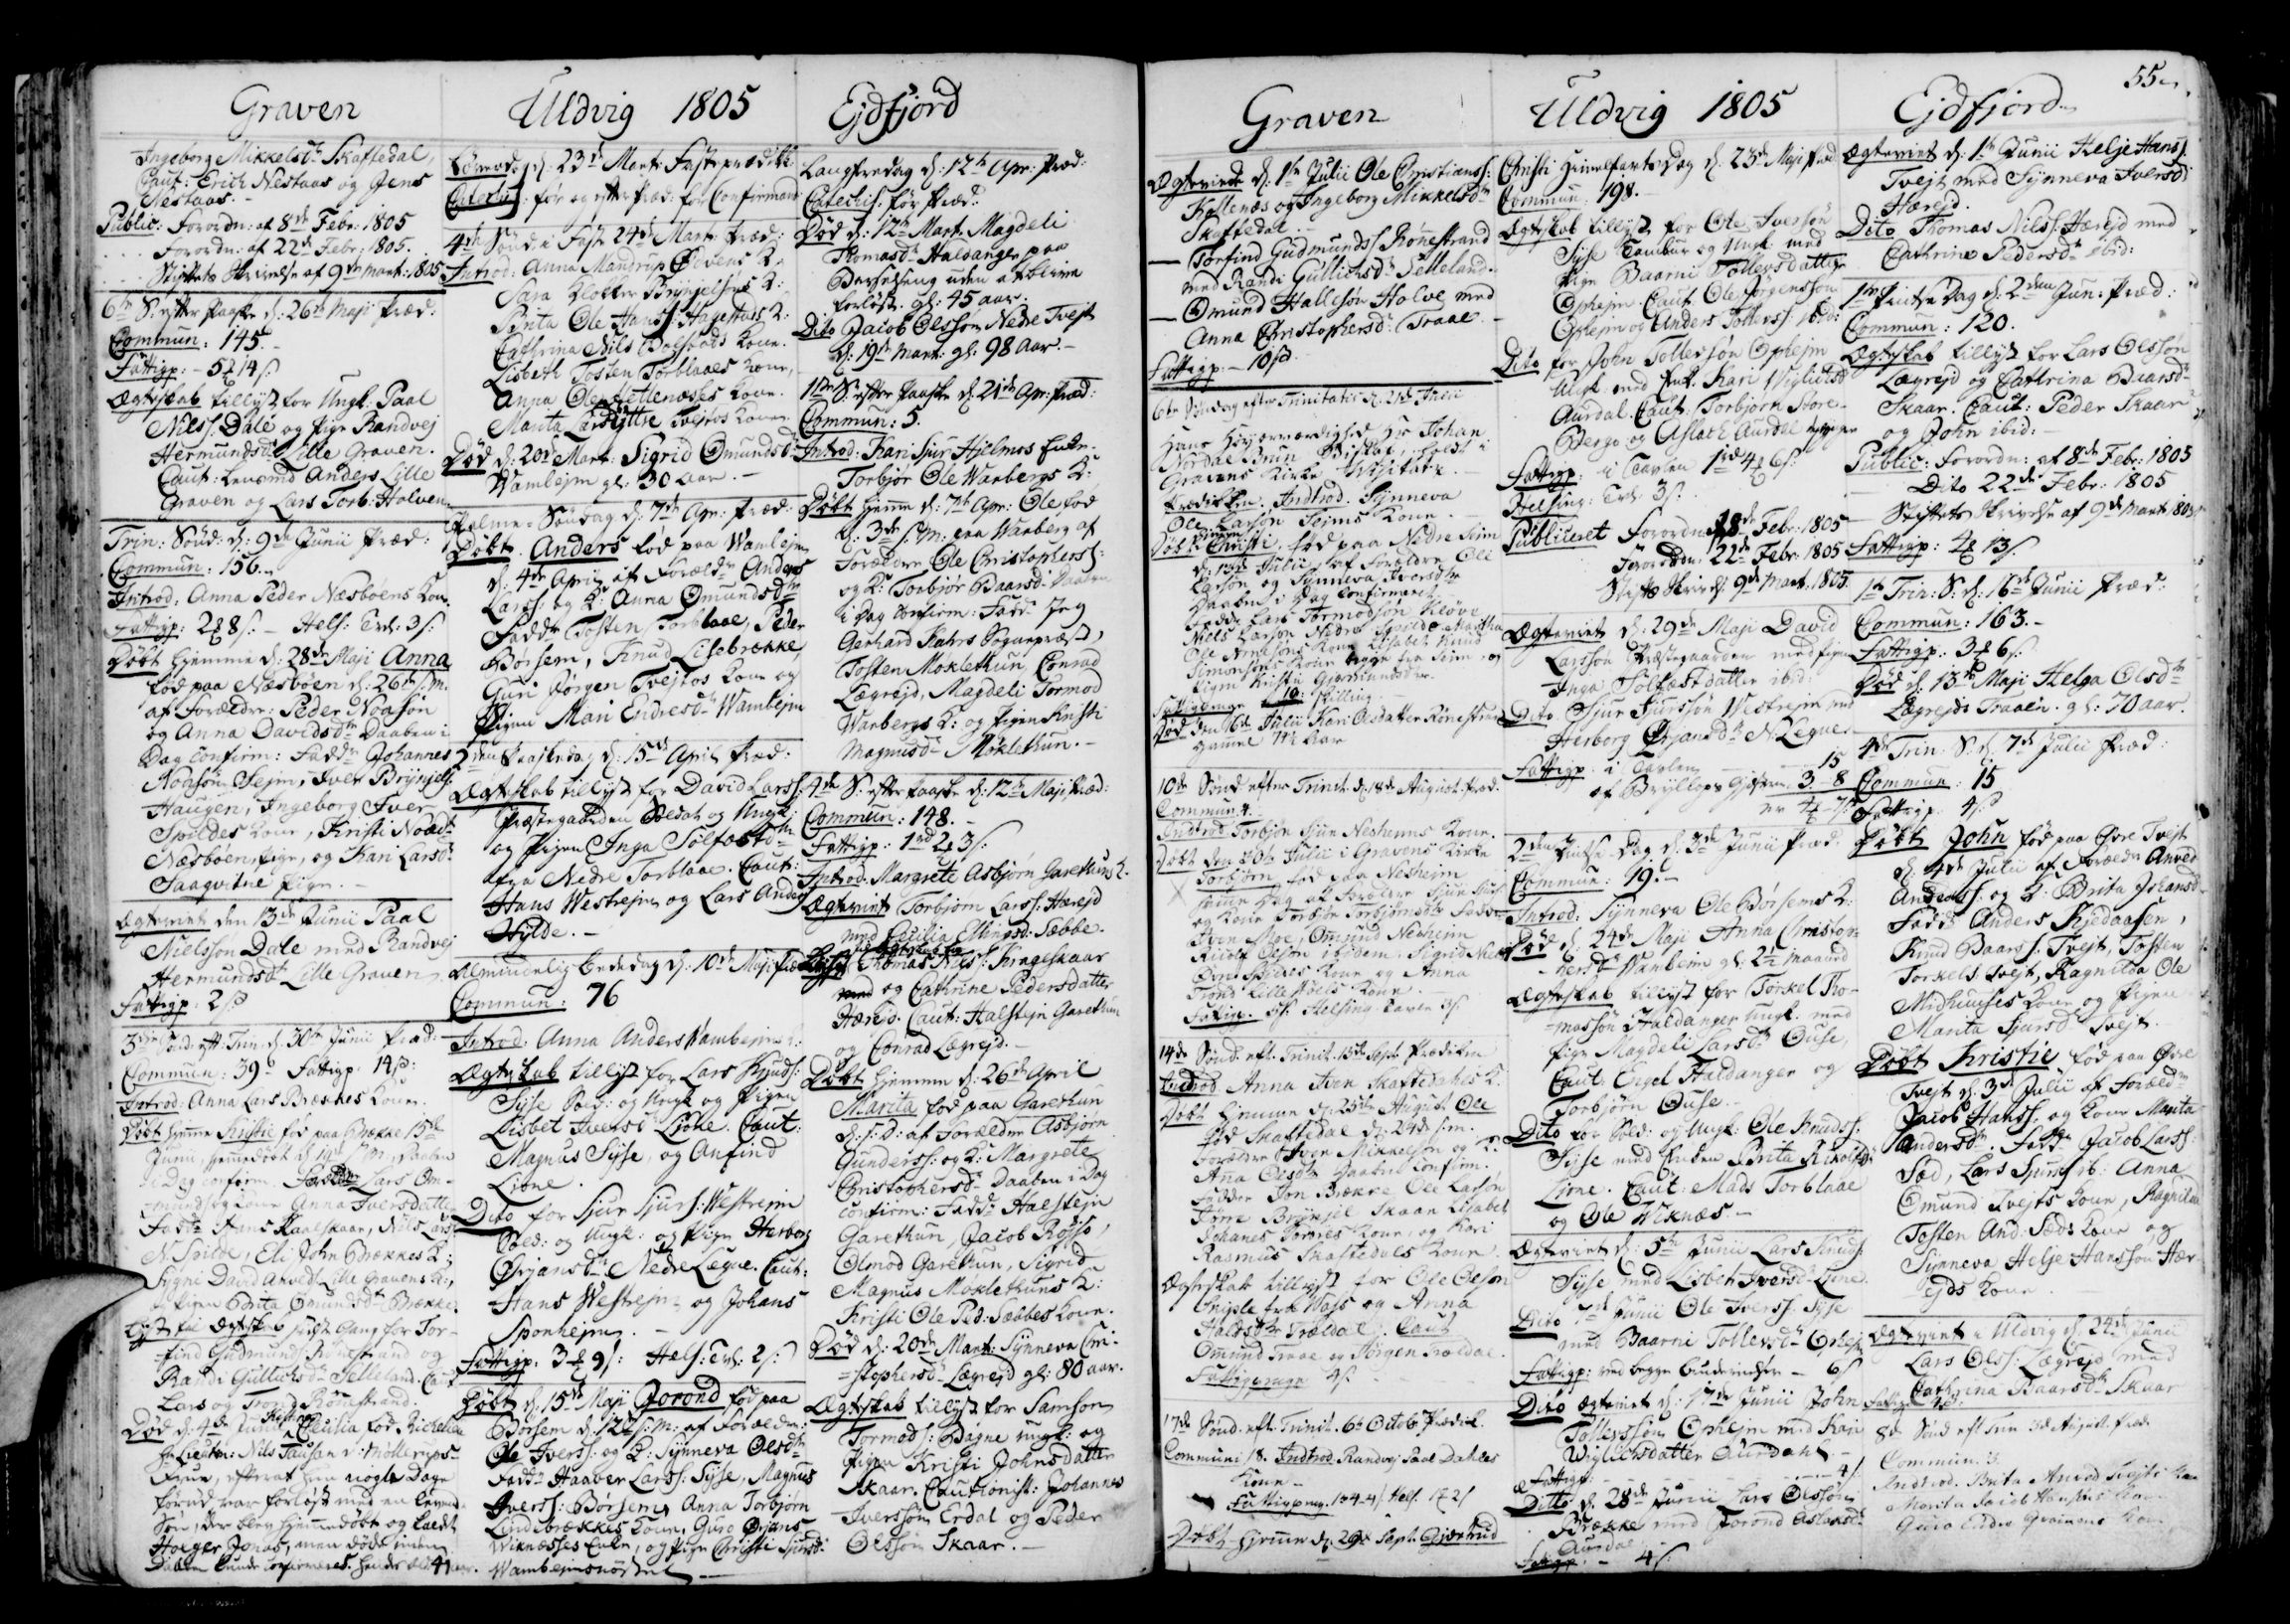 Graven
Ingeborg Mikkelsdr Skaftedal,
Caut: Erich Nestaas og Jens
Nestaas.
Public: Forordn: af 8de Febr: 1805
Forordn: af 22de Febr: 1805.
Stiftets Skrivelse af 9de Mart: 1805
6te S: efter Paaske d: 26de Maji Præd:
Commun: 145.
Fattigp:
Ægteskab tillyst for Ungk: Paal
Nilss: Dale og Pige Randvej
Hermundsdr Lille Graven.
Caut: Lensmand Anders Lille
Graven og Lars Torb: Holven
Trin: Sönd: d: 9de Junii Præd:
Commun: 156.
Introd: Anna Peder Næsböens Kone
Fattigp: 8 s: Hels: Tvl: 3 s:
Döbt hjemme d: 28de Maji Anna
föd paa Næsböen d: 26de s: M.
af Forældre: Peder Noasön
og Anna Davidsdr Daaben i
Dag confirm: Faddr Johannes
Noasön Sejm, Iver Brynjels
Haugen, Ingeborg Iver
Spildes Kone, Kristi Noædr
Næsböen, Pige, og Kari Larsdr
Saaqvitne Pige.
Ægteviet den 13de Junii Paal
Nielssön Dale med Randvej
Hermundsdr Lille Graven.
Fattigp: 2
3die Sönd: eft: Trin: d: 30te Junii Præd:
Commun: 39. Fattigp: 14
Introd: Anna Lars Brækkes Kone.
Döbt hjemme Kristie föd paa Brække 15de
Junii, hjemmedöbt d 19de s: M: Daaben
i Dag confirm. Forældr Lars Om-
mundss og Kone Anna Iversdatter
Faddr Hans Skaalskaar, Nils Larss
N: Spilde, Eli John Brækkes K:
Sygni David Lille Gravens K:
Pigen Brita Omundsdr Brække.
Lyst til Ægteskab første Gang for Tor-
find Gudmunds: Rönestrand og
Randi Gullichsdr Selleland. Caut
Lars og Trond Rönestrand.
Död d: 4de Junii Cecilia föd Michelsen
Hr Lieuten: Nils Tausan v: Mollerups
Frue, efterat hun nogle Dage
förend var forlöst med en levend
Sön, der blev hjemmedöbt og kaldt
Holger Jonas, men döde inden
Daaben kunde confirmeres. hendes alder 41 aar.
Uldvig 1805
Löverd: d: 23de Mart: Fasteprædik:
Catechis: för og efter Præd: for Confirmand:
4de Sönd: i Fast: 24de Mart: Præd:
Introd: Anna Mandrup K:
Sara Klokker Bryngelsens K:
Brita Ole Hanss: Hagestads K:
Cathrina Nils Kone.
Lisbeth Tosten Torblaaes Kone,
Anna Ole Kone.
Marita Lars Kone.
Död d: 20de Mart: Sigrid Omundsdr
Wambejm gl: 30 aar.
Palme-Söndag d: 7de Apr: Præd:
Döbt Anders föd paa Wambejm
d: 4de April af Forældr Anders
Larss: og K: Anna Omundsdr
Faddr Tosten Torblaae, Peder
Börsem, Knud Lisebrække,
Guri Jörgen Tvejtos Kone og
Pigen Mari Endresdr Wambejm
2den Paaskedag d: 15de April Præd:
Ægteskab tillyst for David Larss:
Præstegaarden Soldat og Ungk:
og Pigen Inga Solfæstdr
fra Nedre Torblaae. Caut:
Hans Westrejm og Lars Anders
Hylde.
Almindelig Bededag d: 10de Maji Præd
Commun: 76
Introd: Anna Anders Wambejms K:
Ægteskab tillyst for Lars Knuds:
Syse Sold: og Ungk og Pigen
Lisbet Iversd Lione. Caut:
Magnus Syse, og Anfind
Lione.
Dito for Sjur Sjurs: Westrejm
Sold: og Ungk: og Pige Herborg
Örjansdr Nedre Leqve. Caut:
Hans Westrejm og Johans
Sponhejm.
Fattigp: 3 9 s: Hels: Tvl: 2 s:
Döbt d: 15de Maji Jorond föd paa
Börsem d: 12te s: M: af Forældre:
Ole Iverss: og K: Synneva Olesdr
Faddr Haaver Larss: Syse, Magnus
Iverss: Börsem, Anna Torbjörn
Lindebrækkes Kone, Guro Örjans
Wiknæsses Enke, og Pige Christi Sjursdr
Wambejmsnöstet
Ejdfjord
Langfredag d: 12te Apr: Præd:
Catechis: för Præd:
Död d: 12te Mart: Magdeli
Thomasdr Haldanger paa
Barselseng uden at blive
forlöst gl: 45 aar.
Dito Jacob Olssön Nedre Tvejt
d: 19de Mart: gl: 98 Aar.
1ste S: efter Paaske d: 21de Apr: Præd:
Commun: 5.
Introd: Kari Sjur Hjelmos Enke.
Torbjör Ole Warbergs K:
Döbt hjeme d: 7de Apr: Ole föd
d: 3de s: M: paa Warberg af
Forældre Ole Christopherss:
og K: Torbjör Baarsdr Daaben
i Dag confirm: Faddr Jeg
Gerhard Kahrs Sognepræst,
Tosten Moklethun, Conrad
Lægrejd, Magdeli Tormod
Warbergs K: og Pigen Kristi
Magnusdr Moklethun.
4de S: efter Paaske d: 12te Maji Præd:
Commun: 148.
Fattigp: 1rd 2 3 s:
Introd: Margrete Asbjörn Garethuns K.
Ægteviet Torbjorn Larss: Herejd
med Cecilia Ellingsd: Sæbbe.
Thomas Nilss: Krageskaar
og Cathrine Pedersdatter
Hærejd. Caut: Halstejn Garethun
og Conrad Lægrejd.
Döbt hjemme d: 26de April
Marita föd paa Garethun
d: s: D: af Forældre Asbjörn
Gunderss: og K: Margrete
Christophersdr Daaben i Dag
confirm: Faddr Halstejn
Garethun, Jacob Röjse,
Olmod Garethun, Sigrid
Magnus Möklethuns K:
Kristi Ole Ped: Sæbbes Kone.
Död d: 20de Mart: Synneva Chri-
=stophersdr Lægrejd gl: 80 aar.
Ægteskab tillyst for Samson
Tormods: Bagne ungk: og
Pigen Kristi Johnsdatter
Skaar. Cautionist: Johannes
Iverssön Erdal og Peder
Olssön Skaar.
Graven
Ægteviede d: 1ste Julii Ole Christianss:
Kollenæs og Ingeborg Mikkelsdr
Skaftedal.
— Torfind Gudmundss. Rönestrand
med Randi Gullichsdr Selleland.
— Omund Hallesön Holve med
Anna Christophersdr Traae.
Fattigp: 10
6te Söndag efter Trinitatis d. 21de Julii
Hans Höjærværdighed Hr Johan
Nordal Brun Biskop, holdt i
Gravens Kirke Visitatz.
Prædiken. Indtrod. Synneva
Ole Larsön Sejms Kone.
Döbt Christi, föd paa Nedre Seim
d: 13de Julii af Forældre Ole
Larsön og Synneva Iversdtr
Daaben i Dag confirmeret
Fadde Lars Tormodsön Kløve
Niels Larsön Nedre
Ole Arnesöns Kone Lisabet Knud
Simonsöns Kone begge fra Seim, og
Pigen Kristi Gjermundsdr.
Fattigpenge 10 Skilling
Död den 16de Julii Kari Olsdatter Rönestrand
gammel Aar
10de Sönd. efter Trinit. d: 18de August. Præd.
Commun: 4.
Indtrod Torbjör Sjur Neshems Kone.
Döbt den 30te Julii i Gravens Kirke
Torbjörn föd paa Nesheim
samme Dag af Forældre Sjur
og Kone Torbjör Torbjörnsdtr Faddere
Iver Moe, Ommund Nesheim
Ricolf Olsön ibidem. Sigrid
Spildes Kone og Anna
Trond Lille Kone
Fattigp. Helsing tavlen 3 s
14de Sönd. eft. Trinit. 15de Sept. Prædiken
Indtrod Anna Iver Skaftedahls K.
Döbt hjemme d: 25de August Ole
föd Skaftedal d: 24de s: m.
Forældre Iver Mikkelsön og K.
Ana Olsdtr Daaben Confirm.
Faddere Jon Brække Ole Larsön
Brynjel Skaar Lisabet
Johanes Kone, og Kari
Rasmus Skaftedals Kone
Ægteskab tillyst for Ole Olsön
fra Woss og Anna
Haldsdtr Trældal. Caut
Omund Traae og Jörgen Trældal.
Fattigpenge 4 s
17de Sönd. eft. Trinit. 6te Octob. Prædik.
Commun: 18. Indtrod. Randvej Paal Dahles
Kone
Fattigpeng. Hels. 2 s
Döbt hjemme d: 29de Sept. Gjertrud
Uldvig 1805
Christi Himmelfarts Dag d: 23de Maji Præd
Commun: 198.
Ægteskab tillyst for Ole Iverssön
Syse Tambur og Ungk: med
Pige Baarni Tollevsdatter
Ophejm. Caut: Ole Jörgenssön
Ophejm og Anders Tollevss: ibid:
Dito for John Tollevsön Ophejm
Ungk: med Enk: Kari Wiglichsdr
Aurdal. Caut: Torbjörn Store-
Berge og Aslach Aurdal
Fattigp: i Tavlen 1rd 4 6 s:
Helsing: Tvl: 3 s.
Publiceret Forordn 8de Febr: 1805
Forordn: 22de Febr: 1805
Stifts Skriv: d: 9de Mart: 1805
Ægteviet d: 29de Maji David
Larssön Præstegaarden med Pigen
Inga Solfæstdatter ibid:
Dito Sjur Sjurssön Westrejm med
Herborg Örjansdr N: Leqve.
Fattigp: i Tavlen 15
af Bryllups Gjæsterne 3 8
er 4 7 s
2den Pintse Dag d: 3de Junii Præd.
Commun: 19.
Introd: Synneva Ole Börsems K:
Död d: 24de Maji Anna Christop-
hersdr Wambejm gl: 2 maaned
Ægteskab tillyst for Torkel Tho-
massön Haldanger Ungk: med
Pige Magdeli Larsdr Ouse,
Caut: Engel Haldanger og
Torbjörn Ouse.
Dito for Sold: og Ungk: Ole Knudss:
Syse med Enken Brita Nikolsdr
Lione. Caut: Mads Torblaae
og Ole Wiknæs.
Ægteviet d: 5te Junii Lars Knuds:
Syse med Lisbet Iversdr Lione
Dito Junii Ole Iverss: Syse
med Baarni Tollevsdr Ophejm
Fattigp: ved begge 6 s
Dito Ægteviet d: 17de Junii John
Tollevssön Ophejm med Kari
Wiglichsdatter Aurdahl
Fattigp: 4 s
Ditto d: 28de Junii Lars Olssön
Brække med Jorond Aslaksdr
Aurdal
Fattigp: 4 s:
Ejdfjord
55
Ægteviet d: 1ste Junii Helje Hanss:
Tvejt med Synneva Iversdr
Hærejd.
Dito Thomas Nilss: Hærejd med
Cathrine Pedersdr ibid:
1ste Pintse Dag d: 2den Jun: Præd:
Commun: 120.
Ægteskab tillyst for Lars Olssön
Lægrejd og Cathrina Baarsdr
Skaar. Caut: Peder Skaar
og John ibid:
Public: Forordn: af 8de Febr: 1805
Dito 22de Febr: 1805
Stiftets Skrivelse af 9de Mart: 1805
Fattigp: 4 13 s:
1ste Trin: S: d: 16de Junii Præd:
Commun: 163.
Fattigp: 3 6 s:
Död d: 13de Maji Helga Olsdr
Lægrejds Traaen. gl: 70 aar.
4de Trin: S: d: 7de Julii Præd:
Commun: 15
Fattigp: 4
Döbt John föd paa Övre Tvejt
d: 4de Julii af Forældr Anved
Anderss: og K: Brita Johansdr
Faddr Anders Kjedaasen,
Knud Baarss: Tvejt, Tosten
Torkels: Tvejt, Ragnilda Ole
Midhuuses Kone og Pigen
Marita Sjursdr Tvejt.
Döbt Kristie föd paa Övre
Tvejt d: 3de Julii af Forældr
Jacob Hanss: og Kone Marita
Andersdr. Faddr Jacob Larss:
Sæd, Lars Sjurss ib: Anna
Omund Tvejts Kone, Ragnilda
Tosten And: Sæds Kone og
Synneva Helje Hanssön Hær-
ejds Kone.
Ægteviet i Uldvig d: 24de Junii
Lars Olss: Lægrejd med
Cathrina Baarsdr Skaar
Fattigp
8de Sönd eft Trin d: August. Præd.
Commun: 3
Indtrod. Brita Anved Tvejts Kone
Marita Jacob Hansens Kone
Guro Endre Kone